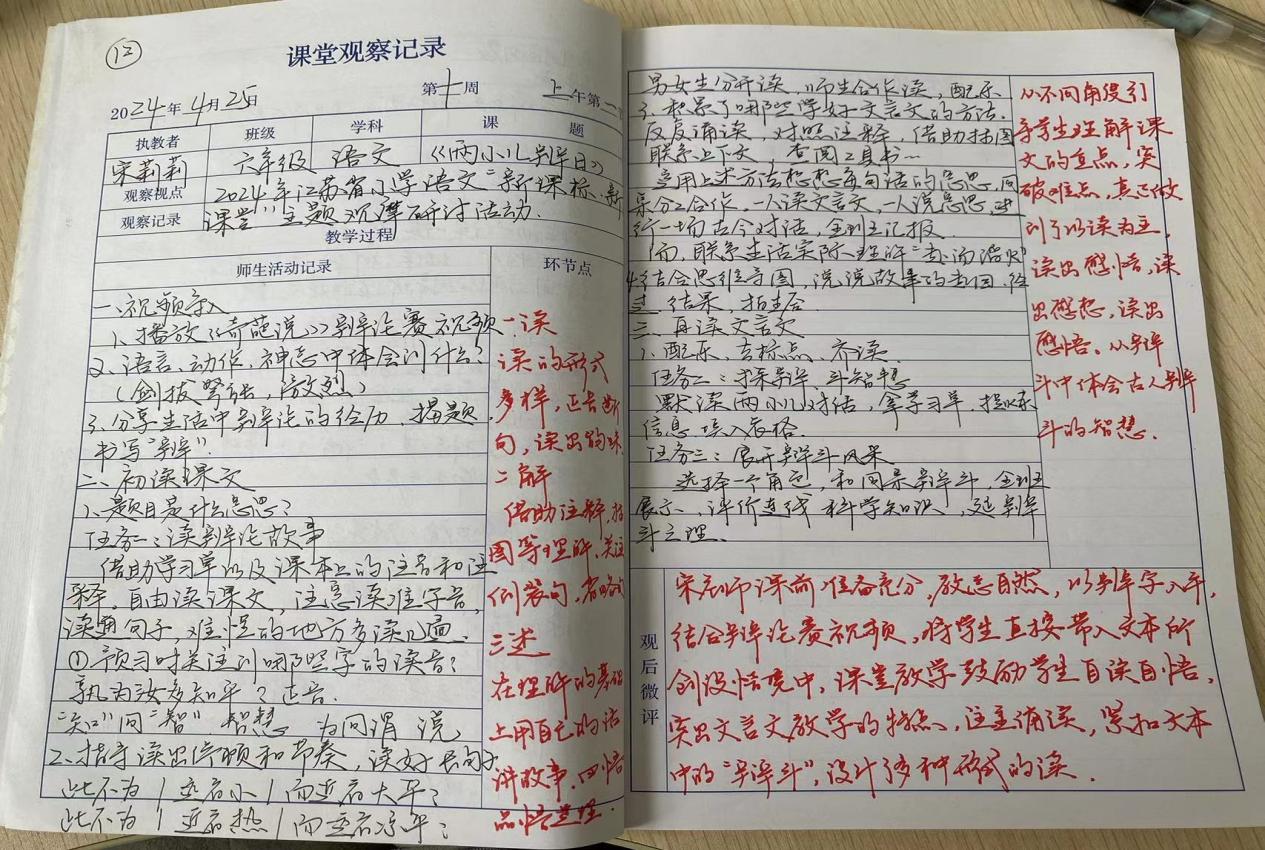 12
课堂观察记录
2024年4月25日 第十周 上午第一节
执教者 班级 学科 课 题
宋莉莉 六年级 语文 《两小儿辩日》
观察视点 2024年江苏省小学语文“新课标、新
观察记录 课堂”主题观摩研讨活动.
教学过程
师生活动记录
一、视频导入
1、播放《奇葩说》辩论赛视频
2、语言、动作、神态中体会到什么?
(剑拔弩张,激烈)
3、分享生活中辩论的经历,揭题,
书写“辩”.
二、初读课文
1、题目是什么意思?
任务一:读辩论故事
借助学习单以及课本上的注音和注
释,自由读课文,注意读准字音,
读通句子,难懂的地方多读几遍.
①预习时关注到哪些字的读音?
孰为汝多知乎?正音.
“知”同“智” 智慧 为同谓 说
2、指导读出停顿和节奏,读好长句子
此不为/远者小/而近者大乎?
此不为/近者热/而远者凉乎?
环节点
一、读
读的形式
多样,正音断
句,读出韵味
二解
借助注释,插
图等理解、关注
倒装句,省略句
三述
在理解的基础
上用自己的话
讲故事.四悟
品悟道理.
男女生分开读,师生合作读,配乐
3、积累了哪些学好文言文的方法.
反复诵读,对照注释,借助插图
联系上下文,查阅工具书…
运用上述方法想想每句话的意思,同
桌分工合作,一人读文言文,一人说意思,进
行一场古今对话,全班汇报.
而,联系生活实际理解“沧沧凉凉”
4、结合思维导图,说说故事的起因、经
过、结果,指生答
三、再读文言文
1、配乐、去标点、齐读.
任务二:探辩斗智慧
默读两小儿对话,拿学习单,提取
信息填入表格.
任务三:展开辩斗风采
选择一个角色,和同桌辩斗,全班
展示,评价连线科学知识,延辩
斗之理.
从不同角度引
导学生理解课
文的重点,突
破难点,真正做
到了以读为主,
读出感悟,读
出感想,读出
感悟。从辩
斗中体会古人辩
斗的智慧.
观后微评
宋老师课前准备充分,教态自然,以辩字入手,
结合辩论赛视频,将学生直接带入文本所
创设情境中,课堂教学鼓励学生自读自悟,
突出文言文教学的特点,注重诵读,紧扣文本
中的“辩斗”,设计多种形式的读.